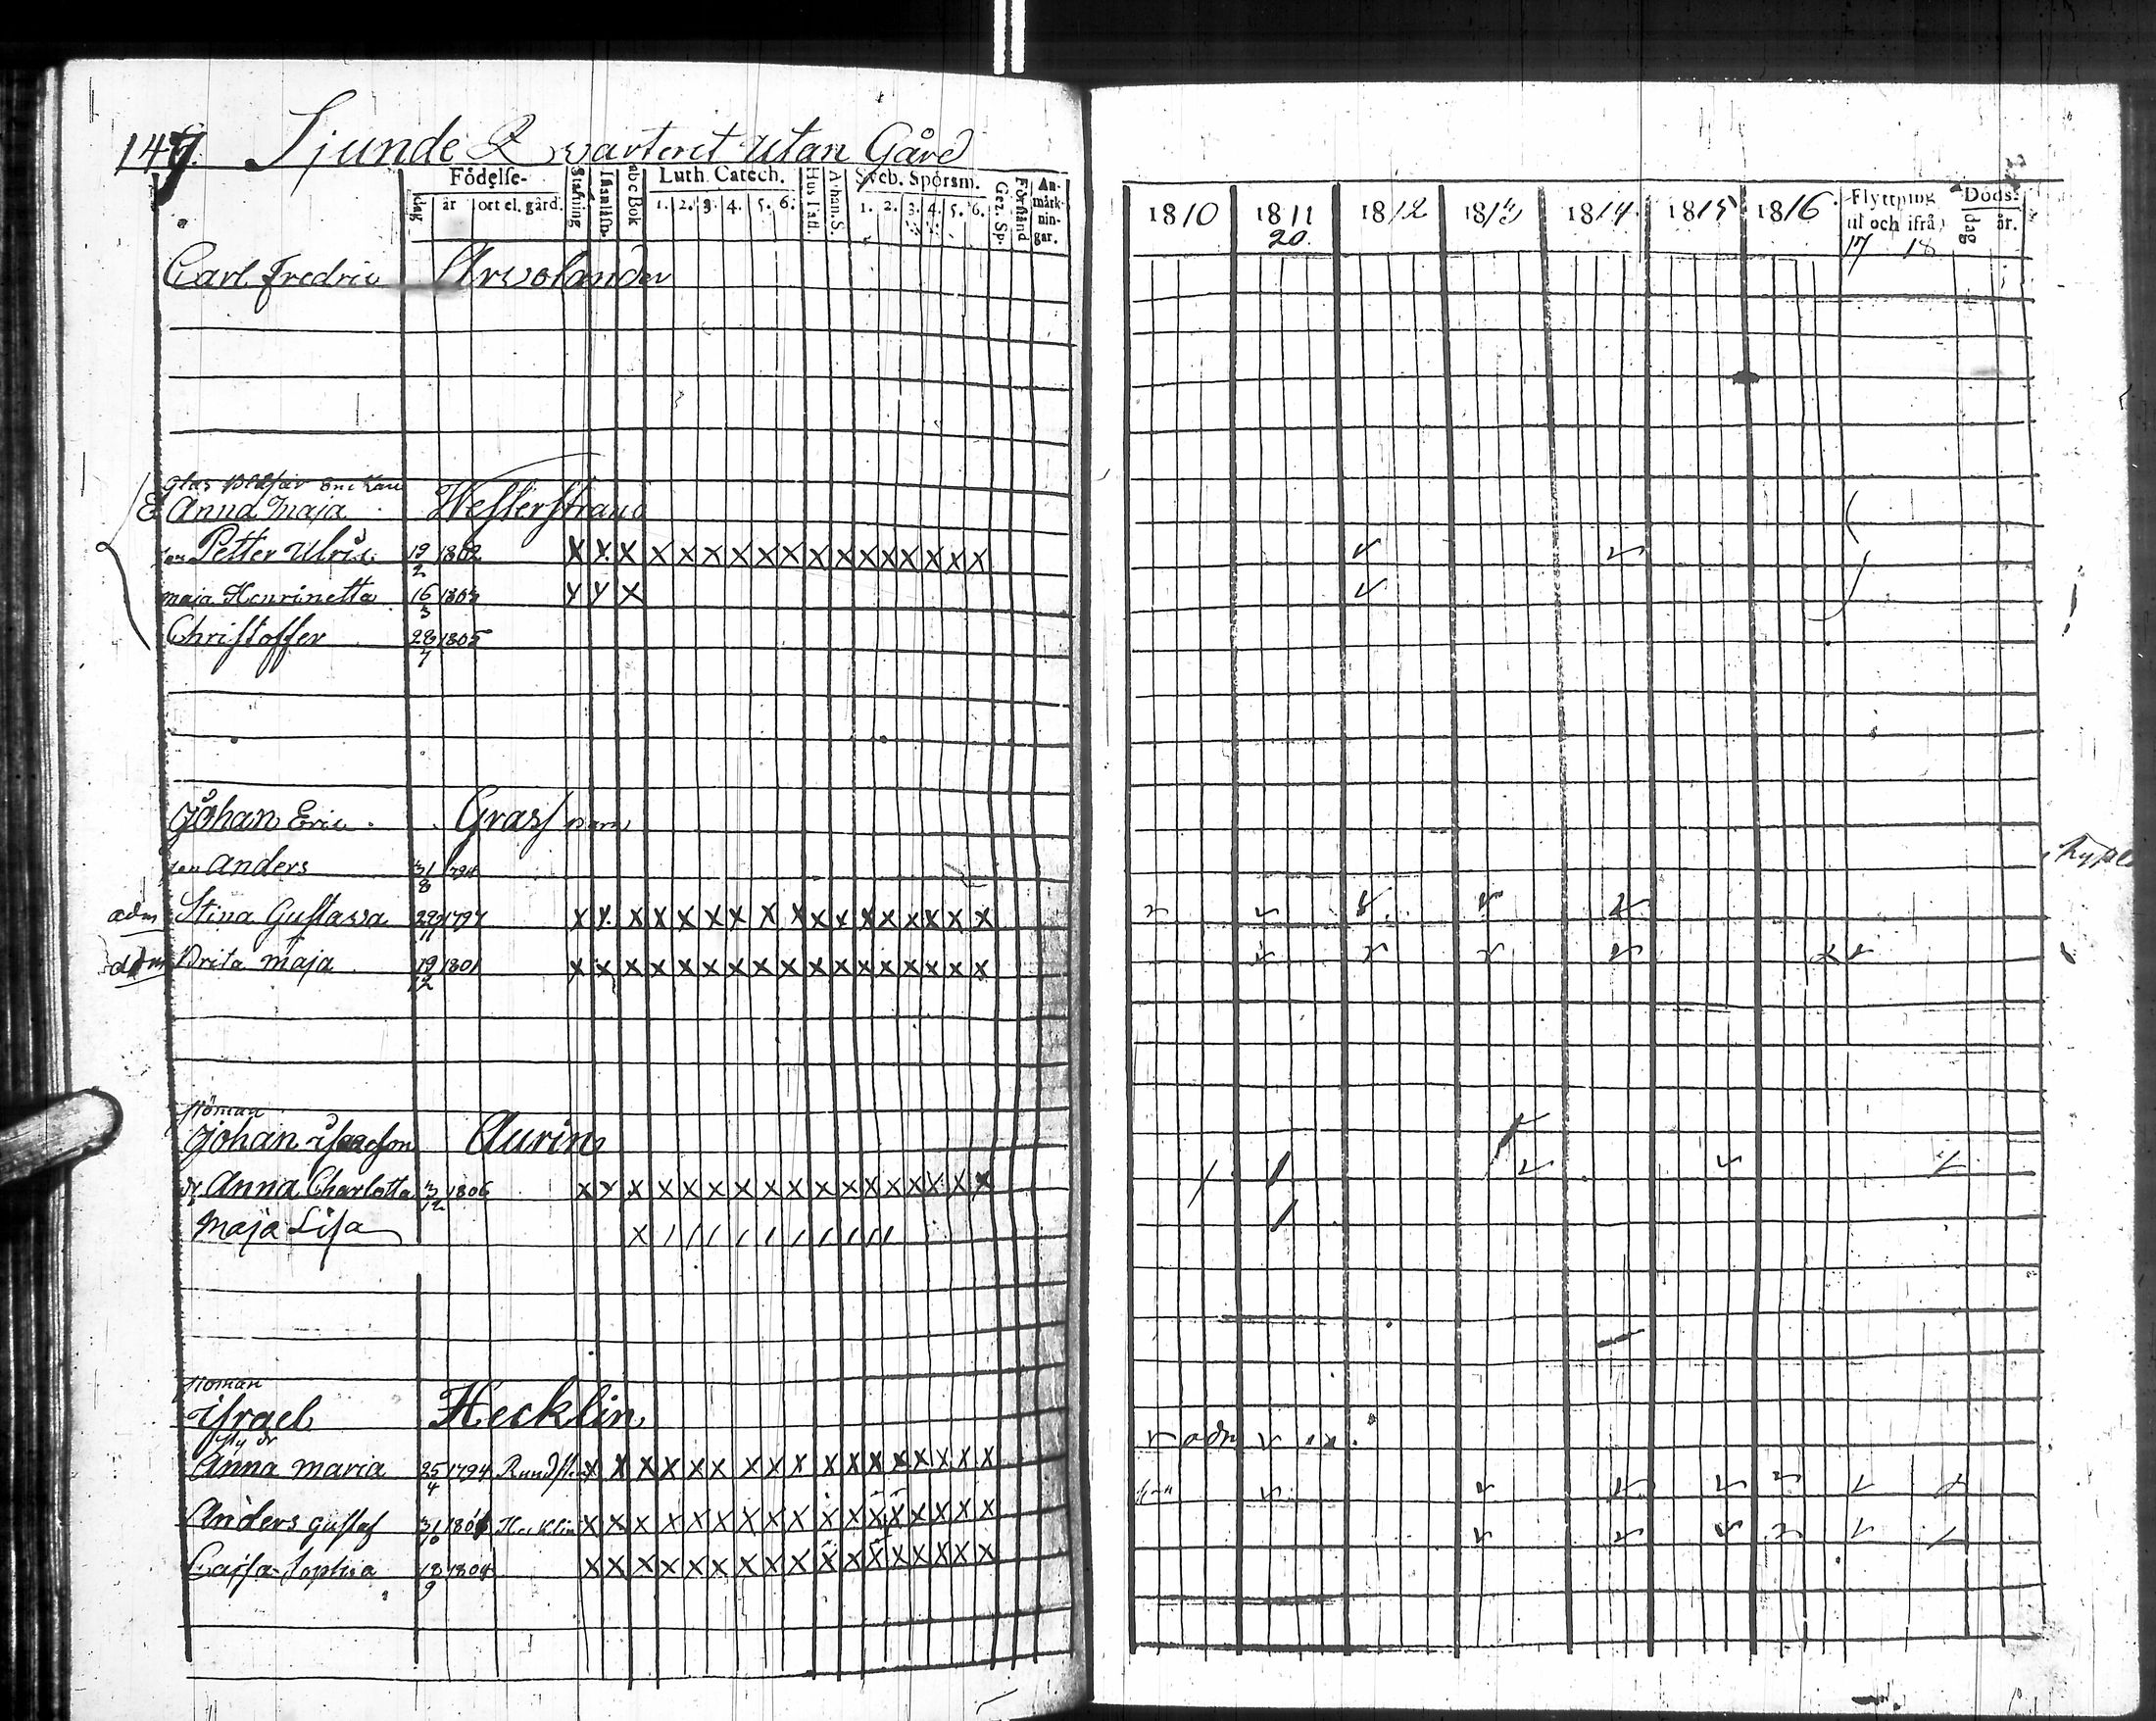 147. Sjunde Qvarteret utan Gård
Födelse- Stafning Innanläsn. abc Bok Luth. Catech. Hus Tafl. Athan. S. Sveb. Spörsm. Gez. Sp. Förstånd An-märk-nin-gar.
dag år ort el. gård. 1. 2. 3. 4. 5. 6. 1. 2. 3. 4. 5. 6.
1810 1811 1812 1813 1814 1815 1816 Flyttning til och ifrå Döds: dag år.
20. 17 18
Carl Fredric Arvolander
Enkan
E Anna Maja Westerstrand
son Petter Ulric 19/2 1802 X X X X X X X X X X X X X X X X X
Maja Henrinetta 16/3 1803 X X X
Christoffer 28/7 1805
Johan Eric Grass barn
son Anders 31/8 1794
adm Stina Gustava 29/11 1797 X X X X X X X X X X X X X X X X X
adm Brita Maja 19/12 1801 X X X X X X X X X X X X X X X X X
Johan Isacson Aurin
Dr Anna Charlotta 3/12 1806 X X X X X X X X X X X X X X X X X
Maja Lisa X
Israel Hecklin
sty dr
Anna Maria 25/4 1794 X X X X X X X X X X X X X X X X X
Anders Gustaf 31/10 1801 Hecklin X X X X X X X X X X X X X X X X X
Cajsa Sophia 18/9 1804 X X X X X X X X X X X X X X X X X